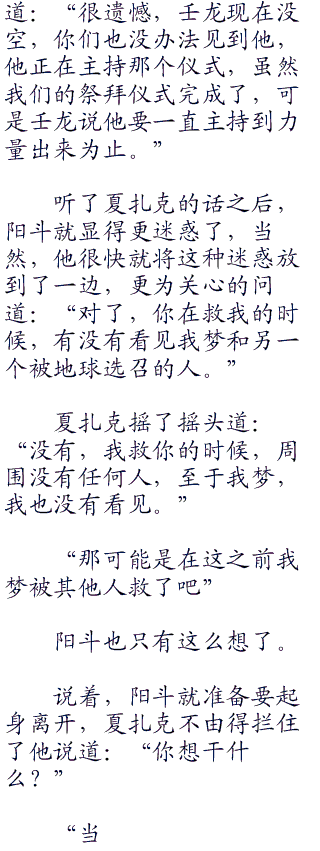 道：“很遗憾，壬龙现在没
空，你们也没办法见到他，
他正在主持那个仪式，虽然
我们的祭拜仪式完成了，可
是壬龙说他要一直主持到力
量出来为止。”
听了夏扎克的话之后，
阳斗就显得更迷惑了，当
然，他很快就将这种迷惑放
到了一边，更为关心的问
道：“对了，你在救我的时
候，有没有看见我梦和另一
个被地球选召的人。”
夏扎克摇了摇头道：
“没有，我救你的时候，周
围没有任何人，至于我梦，
我也没有看见。”
“那可能是在这之前我
梦被其他人救了吧”
阳斗也只有这么想了。
说着，阳斗就准备要起
身离开，夏扎克不由得拦住
了他说道：“你想干什
么？”
“当